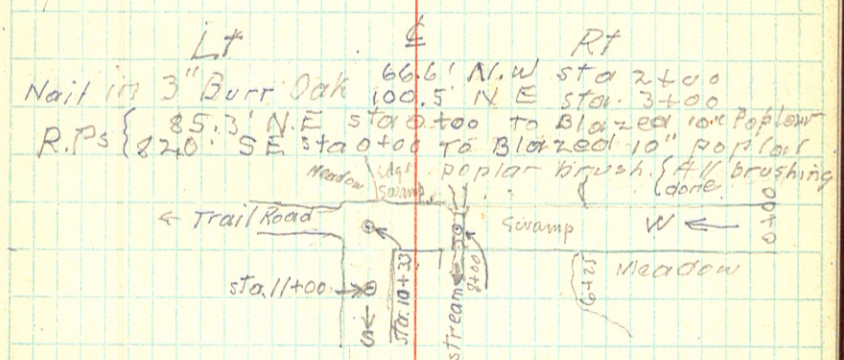 Lt ℄ Rt
Nail in 3" Burr Oak 66.6' N.W sta 2+00
100.5' N E sta. 3+00
R.Ps { 85.3' N.E sta 0+00 To Blazed 10" Poplar
820' SE sta 0+00 To Blazed 10" poplar
Meadow Edge Swamp. poplar brush. { All brushing done
← Trail Road Swamp W ← 0+00
Meadow
sta. 11+00 → S sta. 10+33 stream 8+00 6+25